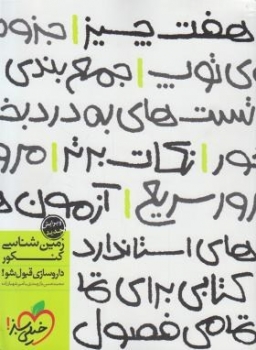 هفت چیز | جزوه
ی توپ | جمع بندی
تست های به درد بخ
ور | نکات برتر | مرو
ر سریع | آزمون
های استاندارد
کتابی برای تما
تمامی فصول
ویرایش جدید
زمین شناسی
کنکور
داروسازی قبول شو!
خیلی سبز